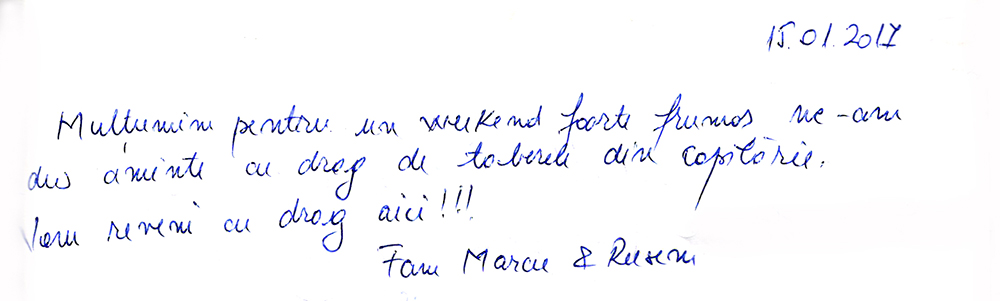 15.01.2017
Mulțumim pentru un weekend foarte frumos ne-am
dus aminte cu drag de taberele din copilărie.
Vom reveni cu drag aici!!!
Fam Marcu & Ruseni